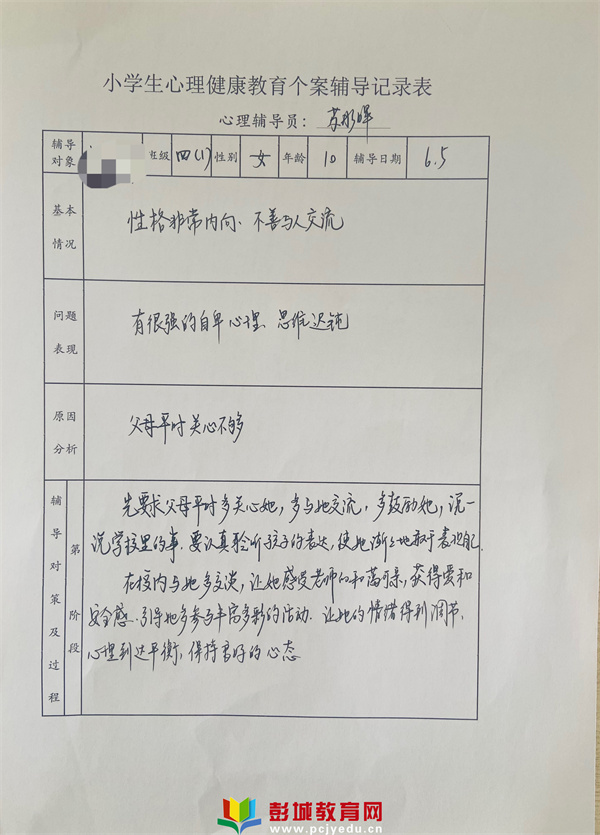 小学生心理健康教育个案辅导记录表
心理辅导员：苏
辅导对象 班级 四(1) 性别 女 年龄 10 辅导日期 6.5
基本情况 性格非常内向、不善与人交流
问题表现 有很强的自卑心理、思维迟钝
原因分析 父母平时关心不够
辅导对策及过程 第 阶段
先要求父母平时多关心她，多与她交流，多鼓励她，说一
说学校里的事．要认真聆听孩子的表达，使她渐渐地敢于表现自己．
在校内与她多交谈，让她感受老师的和蔼可亲，获得爱和
安全感．引导她多参与丰富多彩的活动．让她的情绪得到调节，
心理到达平衡，保持良好的心态
彭城教育网
www.pcjyedu.cn